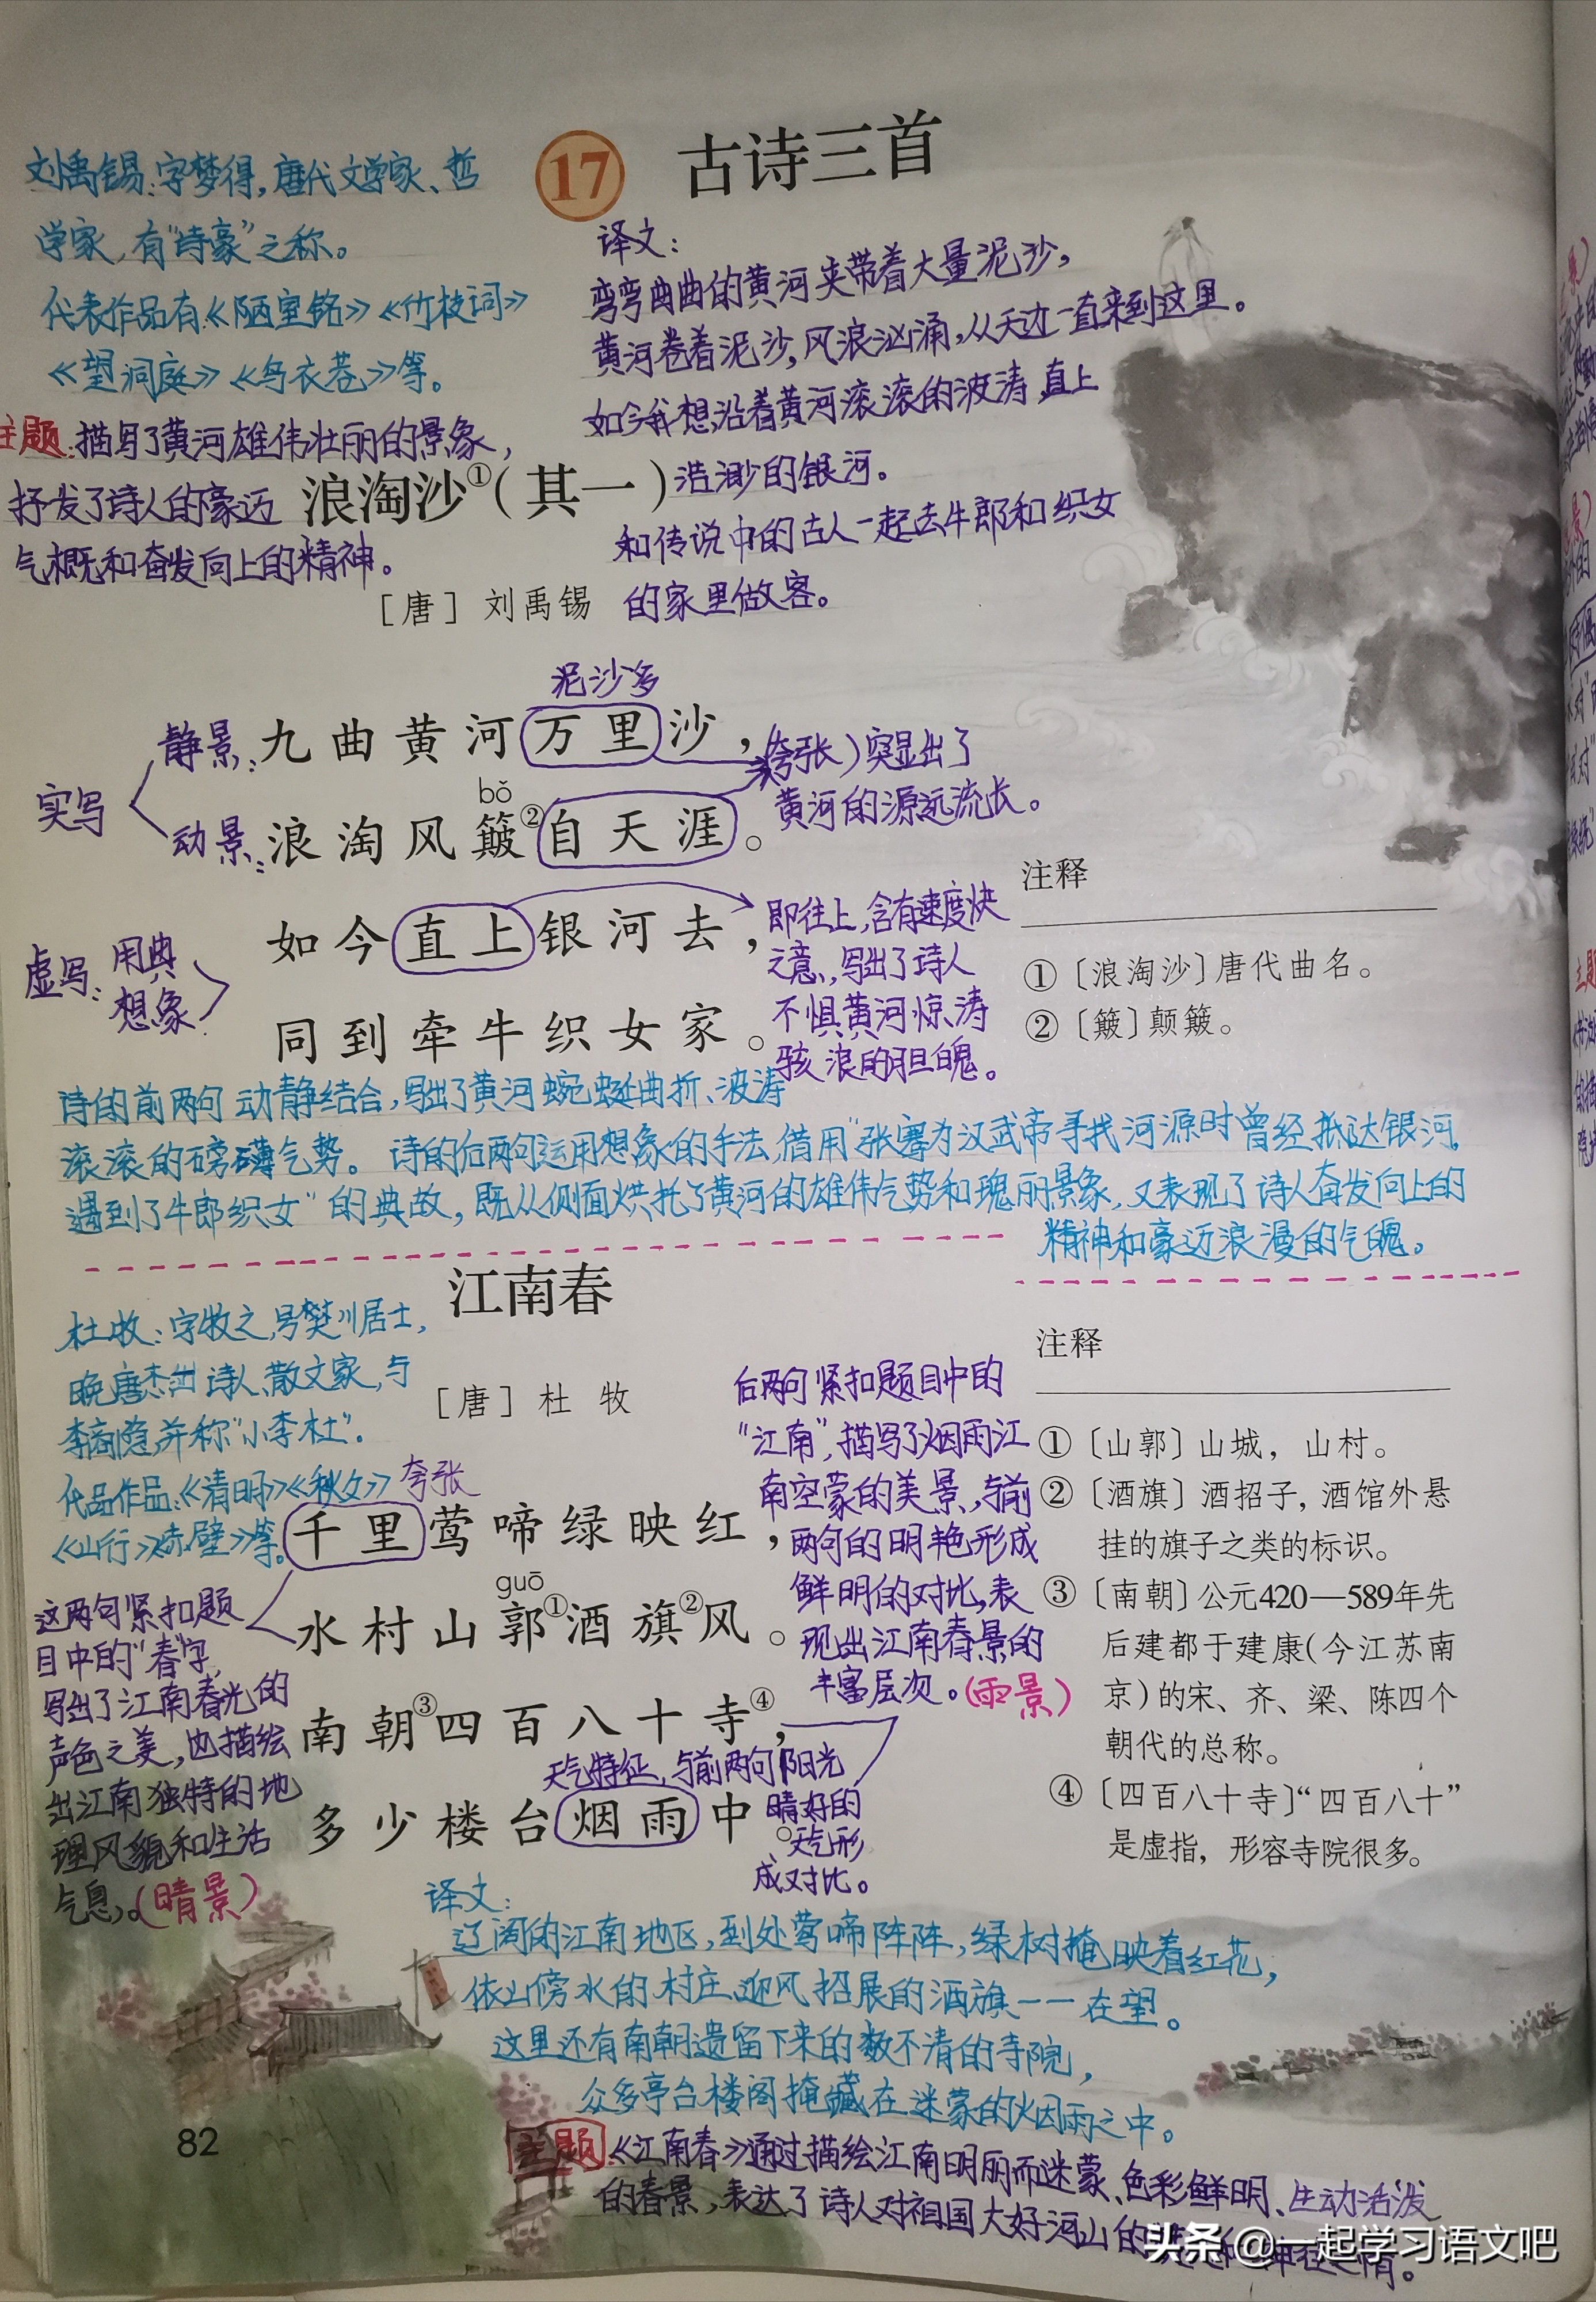 17 古诗三首
刘禹锡:字梦得,唐代文学家、哲
学家,有“诗豪”之称。
代表作品有《陋室铭》《竹枝词》
《望洞庭》《乌衣巷》等。
译文:
弯弯曲曲的黄河夹带着大量泥沙,
黄河卷着泥沙,风浪汹涌,从天边一直来到这里。
如今我想沿着黄河滚滚的波涛直上
浩渺的银河。
和传说中的古人一起去牛郎和织女
的家里做客。
主题:描写了黄河雄伟壮丽的景象,
抒发了诗人的豪迈
气概和奋发向上的精神。
浪淘沙①(其一)
[唐] 刘禹锡
泥沙多
实写
静景:
九曲黄河万里沙,
动景:
bǒ
浪淘风簸②自天涯。
(夸张)突显出了
黄河的源远流长。
虚写:
用典
想象
如今直上银河去,
同到牵牛织女家。
即往上,含有速度快
之意,写出了诗人
不惧黄河惊涛
骇浪的胆魄。
注释
①〔浪淘沙〕唐代曲名。
②〔簸〕颠簸。
诗的前两句动静结合,写出了黄河蜿蜒曲折、波涛
滚滚的磅礴气势。诗的后两句运用想象的手法,借用“张骞为汉武帝寻找河源时曾经抵达银河
遇到了牛郎织女”的典故,既从侧面烘托了黄河的雄伟气势和瑰丽景象,又表现了诗人奋发向上的
精神和豪迈浪漫的气魄。
江南春
[唐] 杜 牧
杜牧:字牧之,号樊川居士,
晚唐杰出诗人、散文家,与
李商隐并称“小李杜”.
代品作品:《清明》《秋夕》
《山行》《赤壁》等。
夸张
千里莺啼绿映红,
guō
水村山郭①酒旗②风。
南朝③四百八十寺④,
多少楼台烟雨中。
这两句紧扣题
目中的“春”字,
写出了江南春光的
声色之美,也描绘
出江南独特的地
理风貌和生活
气息。(晴景)
后两句紧扣题目中的
“江南”,描写了烟雨江
南空蒙的美景,与前
两句的明艳形成
鲜明的对比,表
现出江南春景的
丰富层次。(雨景)
天气特征,与前两句阳光
晴好的
天气形
成对比。
注释
①〔山郭〕山城,山村。
②〔酒旗〕酒招子,酒馆外悬
挂的旗子之类的标识。
③〔南朝〕公元420—589年先
后建都于建康(今江苏南
京)的宋、齐、梁、陈四个
朝代的总称。
④〔四百八十寺〕“四百八十”
是虚指,形容寺院很多。
译文:
辽阔的江南地区,到处莺啼阵阵,绿树掩映着红花,
依山傍水的村庄、迎风招展的酒旗一一在望。
这里还有南朝遗留下来的数不清的寺院,
众多亭台楼阁掩藏在迷蒙的烟雨之中。
主题:《江南春》通过描绘江南明丽而迷蒙、色彩鲜明、生动活泼
的春景,表达了诗人对祖国大好河山的
82
头条 @一起学习语文吧